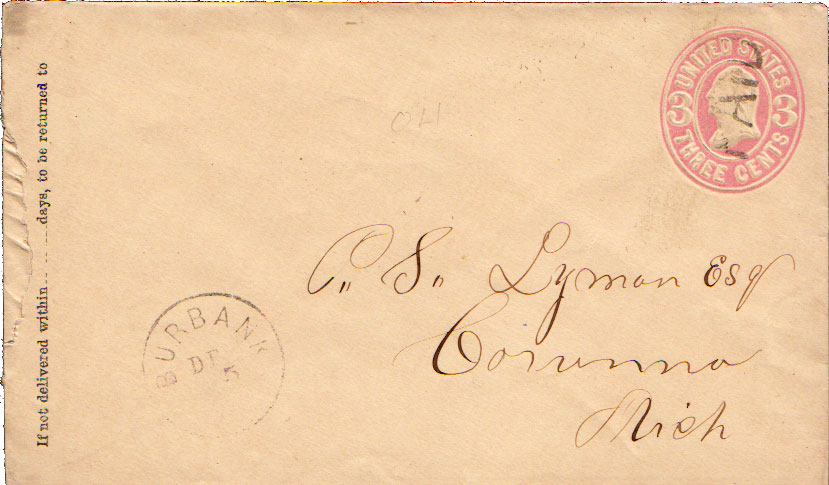 If not delivered within ........ days, to be returned to
UNITED STATES
3 3
THREE CENTS
P. S. Lyman Esq
Corunna
Mich
BURBANK
DE
5